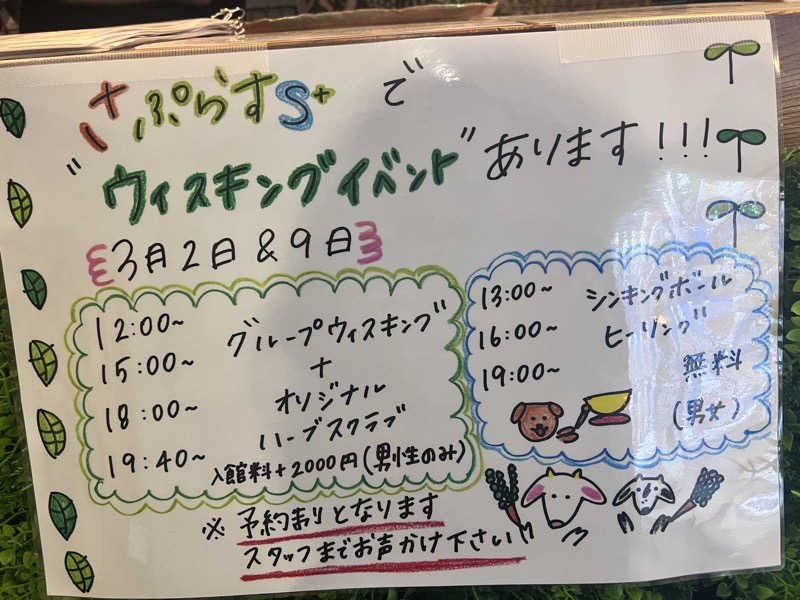 さぷらすS+ で
"ウィスキングイベント"あります!!!
3月2日&9日
12:00~
15:00~
18:00~
19:40~
グループウィスキング
+
オリジナル
ハーブスクラブ
入館料+2000円(男性のみ)
13:00~
16:00~
19:00~
シンキングボール
ヒーリング
無料
(男女)
※予約ありとなります
スタッフまでお声かけ下さい